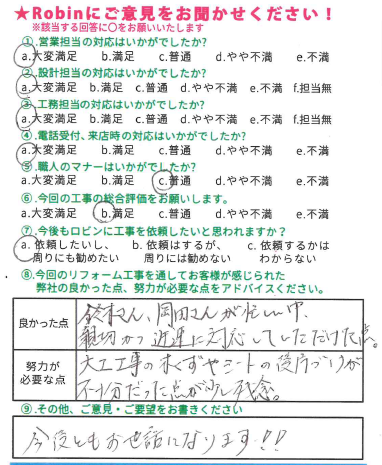 ★Robinにご意見をお聞かせください！
※該当する回答に〇をお願いいたします
①.営業担当の対応はいかがでしたか?
a.大変満足 b.満足 c.普通 d.やや不満 e.不満
②.設計担当の対応はいかがでしたか?
a.大変満足 b.満足 c.普通 d.やや不満 e.不満 f.担当無
③.工務担当の対応はいかがでしたか?
a.大変満足 b.満足 c.普通 d.やや不満 e.不満 f.担当無
④.電話受付、来店時の対応はいかがでしたか?
a.大変満足 b.満足 c.普通 d.やや不満 e.不満
⑤.職人のマナーはいかがでしたか?
a.大変満足 b.満足 c.普通 d.やや不満 e.不満
⑥.今回の工事の総合評価をお願いします。
a.大変満足 b.満足 c.普通 d.やや不満 e.不満
⑦.今後もロビンに工事を依頼したいと思われますか?
a. 依頼したいし、 b. 依頼はするが、 c. 依頼するかは
周りにも勧めたい 周りには勧めない わからない
⑧.今回のリフォーム工事を通してお客様が感じられた
弊社の良かった点、努力が必要な点をアドバイスください。
良かった点
鈴木さん、岡田さんが忙しい中、
親切かつ迅速に対応していただけた点。
努力が
必要な点
大工工事の木くずやシートの後片づけが
不十分だった点が少し残念。
⑨.その他、ご意見・ご要望をお書きください
今後ともお世話になります!!